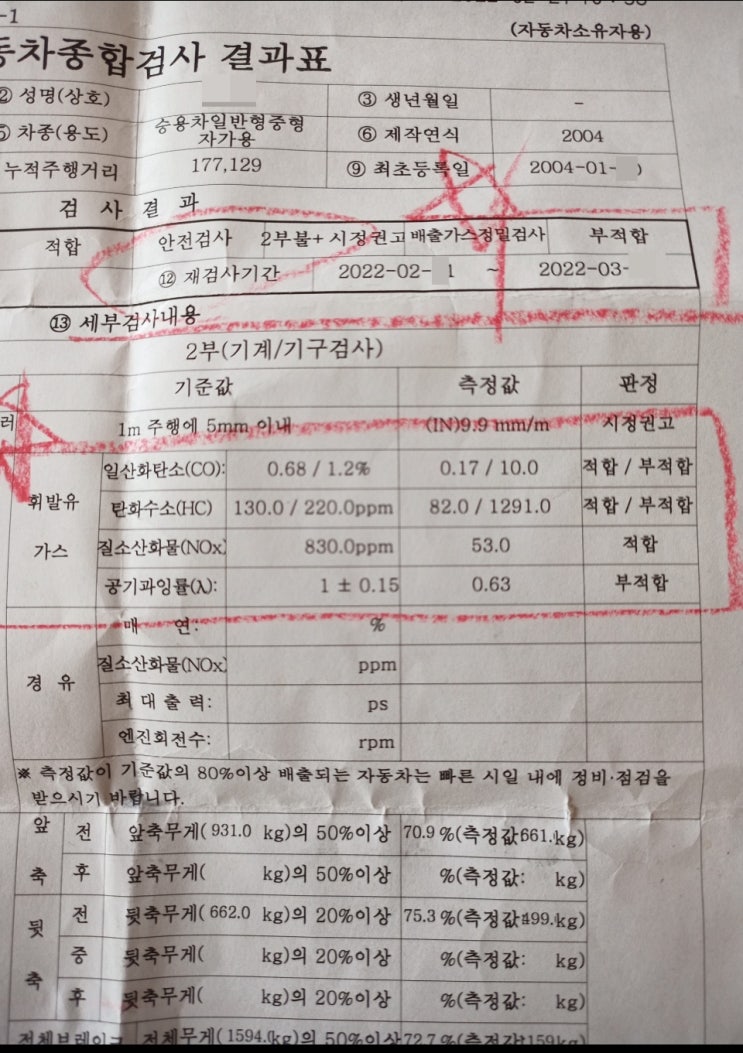 -1
(자동차소유자용)
동차종합검사 결과표
② 성명(상호) ③ 생년월일 -
⑤ 차종(용도) 승용차일반형중형 자가용 ⑥ 제작연식 2004
누적주행거리 177,129 ⑨ 최초등록일 2004-01-
검 사 결 과
적합 안전검사 2부불+ 시정권고 배출가스정밀검사 부적합
⑫ 재검사기간 2022-02- 1 ~ 2022-03-
⑬ 세부검사내용
2부(기계/기구검사)
기준값 측정값 판정
1m 주행에 5mm 이내 (IN)9.9 mm/m 시정권고
휘발유 가스
일산화탄소(CO): 0.68 / 1.2% 0.17 / 10.0 적합 / 부적합
탄화수소(HC) 130.0 / 220.0ppm 82.0 / 1291.0 적합 / 부적합
질소산화물(NOx) 830.0ppm 53.0 적합
공기과잉률(λ): 1 ± 0.15 0.63 부적합
경 유
매 연: %
질소산화물(NOx) ppm
최 대 출 력: ps
엔진회전수: rpm
※ 측정값이 기준값의 80%이상 배출되는 자동차는 빠른 시일 내에 정비·점검을
받으시기 바랍니다.
앞 축
전 앞축무게( 931.0 kg)의 50%이상 70.9 %(측정값661. kg)
후 앞축무게( kg)의 50%이상 %(측정값: kg)
뒷 축
전 뒷축무게( 662.0 kg)의 20%이상 75.3 %(측정값499. kg)
중 뒷축무게( kg)의 20%이상 %(측정값: kg)
후 뒷축무게( kg)의 20%이상 %(측정값: kg)
전체브레이크 전체무게(1594.(kg)의 50%이상 72.7 %(측정값1159kg)